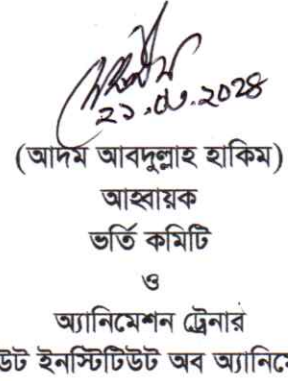 (আদম আবদুল্লাহ হাকিম)
আহ্বায়ক
ভর্তি কমিটি
ও
অ্যানিমেশন ট্রেনার
উট ইনস্টিটিউট অব অ্যানিমে